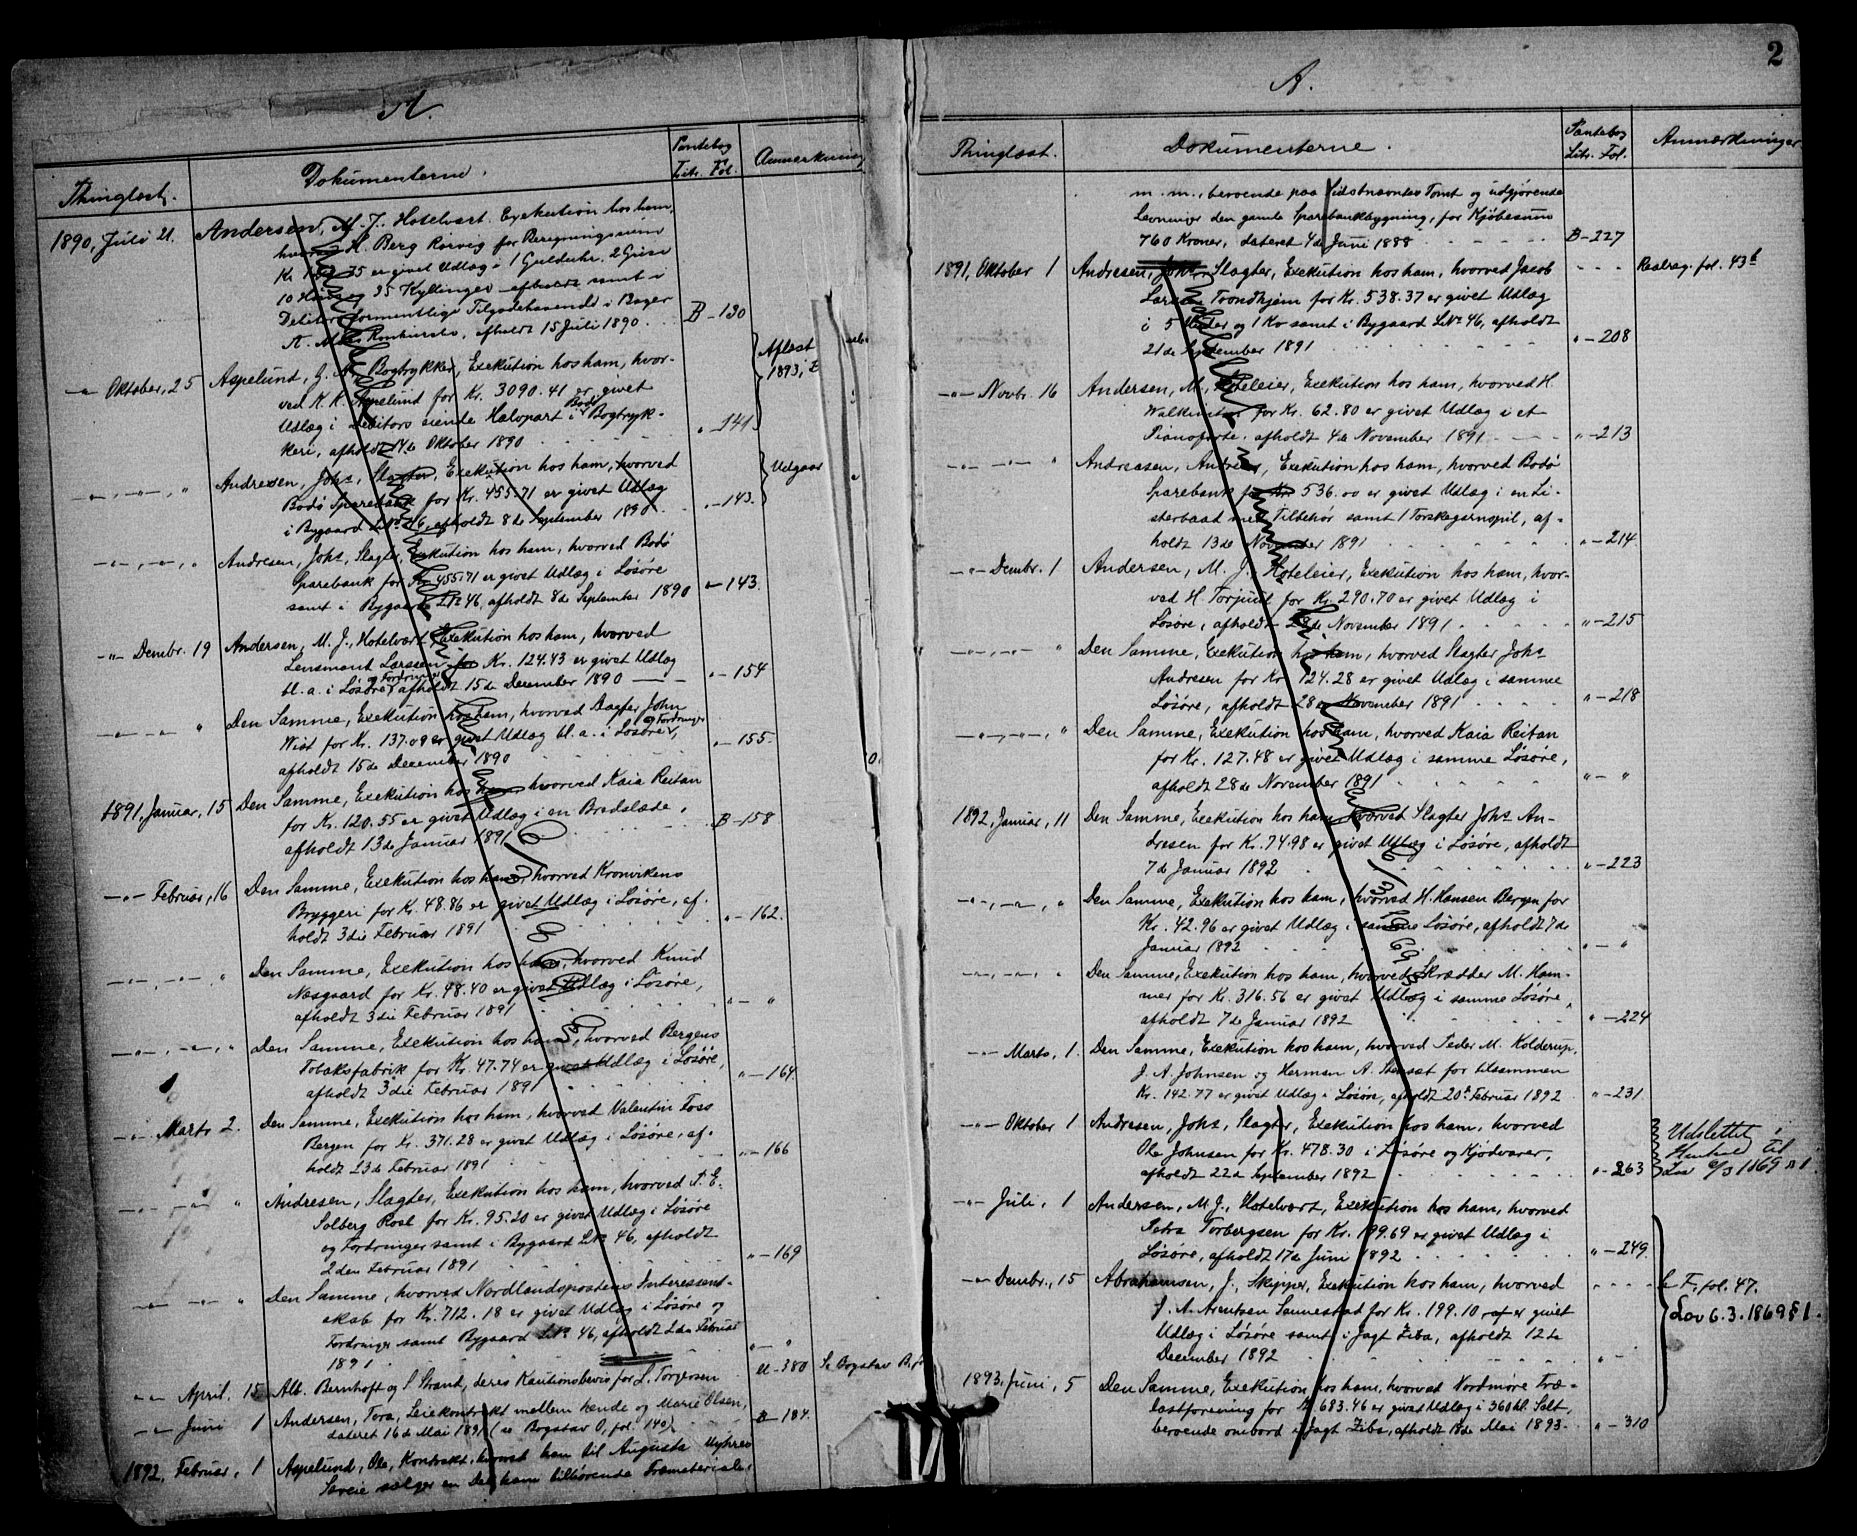 A.
Thinglæst.
Dokumenterne.
Pantebog
Litr. Fol.
Anmærkning
1890, Juli 21.
Andersen, M. J., Hotelvært. Exekution hos ham,
hvorved H. Berg Rørvig for Beregningssum
Kr. 35 er givet Udlæg i 1 Gulduhr, 2 Grise
10 Høns og 35 Kyllinger afholdt samt i
Debitors formentlige Tilgodehavende i Bager
A. Konkursbo, afholdt 15 Juli 1890.
B - 130
-"- Oktober, 25
Aspelund, J. A., Bogtrykker, Exekution hos ham, hvor-
ved K. K. Aspelund for Kr. 3090.41 er givet
Udlæg i Debitors eiende Halvpart i Bodø Bogtryk-
keri, afholdt 14de Oktober 1890
" - 141
Aflæst
1893,
-"-, -"-, "
Andresen, Johs, Slagter, Exekution hos ham, hvorved
Bodø Sparebank for Kr. 455.71 er givet Udlæg
i Bygaard L.Nº 46, afholdt 8de September 1890.
" - 143.
Udgaar
-"-, -"-, "
Andresen, Johs, Slagter, Exekution hos ham, hvorved Bodø
Sparebank for Kr. 455.71 er givet Udlæg i Løsøre
samt i Bygaard L.Nº 46, afholdt 8de September 1890
" - 143.
-"- Dembr. 19
Andersen, M. J., Hotelvært Exekution hos ham, hvorved
Lensmand Larssen for Kr. 124.43 er givet Udlæg
bl. a. i Løsøre og Fordringer afholdt 15de December 1890
" - 154
-"- -"- "
Den Samme, Exekution hos ham, hvorved John
Wist for Kr. 137.09 er givet Udlæg bl. a. i Løsøre og Fordringer,
afholdt 15de December 1890
" - 155.
1891, Januar, 15
Den Samme, Exekution hos ham hvorved Kaia Reitan
for Kr. 120.55 er givet Udlæg i en Bredslæde,
afholdt 13de Januar 1891
B - 158
-"- Februar, 16
Den Samme, Exekution hos ham, hvorved Kronvikens
Bryggeri for Kr. 48.86 er givet Udlæg i Løsøre, af-
holdt 3die Februar 1891
" - 162.
-"-, -"- "
Den Samme, Exekution hos ham, hvorved Knud
Næsgaard for Kr. 48.40 er givet Udlæg i Løsøre,
afholdt 3die Februar 1891
" - "
-"-, -"-, "
Den Samme, Exekution hos ham, hvorved Bergens
Tobaksfabrik for Kr. 47.74 er givet Udlæg i Løsøre,
afholdt 3die Februar 1891
" - 164
-"- Marts 2.
Den Samme, Exekution hos ham, hvorved Valentin Foss
Bergen for Kr. 371.28 er givet Udlæg i Løsøre, af-
holdt 23de Februar 1891
" - 166
-"- -"- "
Andresen, Slagter, Exekution hos ham, hvorved P. E.
Solberg Røst for Kr. 95.20 er givet Udlæg i Løsøre
og Fordringer samt i Bygaard L.Nº 46, afholdt
2den Februar 1891
" - 169
-"- -"- "
Den Samme, hvorved Nordlandspostens Interessent-
skab for Kr. 712.18 er givet Udlæg i Løsøre og
Fordringer samt Bygaard L.Nº 46, afholdt 2den Februar
1891
" - "
-"- April. 15
Alb. Bernhoft og S. Strand, deres Kautionsbevis for L. Torgersen
A - 380
Se Bogstav B.
-"- Juni 1
Andersen, Tora, Leiekontrakt mellem hende og Marie Olsen,
dateret 16de Mai 1891 (se Bogstav O, fol. 140)
B - 184.
1892, Februar, 1
Aspelund, Ole, Kontrakt, hvorved han til Augusta
sælger en Del ham tilhørende Træmaterialer
2
A.
Thinglæst.
Dokumenterne.
Pantebog
Litr. Fol.
Anmærkninger
m. m., beroende paa sidstnævntes Tomt og udgjørende
Levninger den gamle Sparebankbygning, for Kjøbesum
760 Kroner, dateret 4de Juni 1888
B - 227
1891, Oktober 1
Andresen, Slagter, Exekution hos ham, hvorved Jacob
Larsen Trondhjem for Kr. 538.37 er givet Udlæg
i 5 og 1 Ko samt i Bygaard L.Nº 46, afholdt
21de September 1891
" - 208
Realreg. fol. 43b
-"- Novbr. 16
Andersen, M., Hoteleier, Exekution hos ham, hvorved H.
for Kr. 62.80 er givet Udlæg i et
Pianoforte, afholdt 4de November 1891
" - 213
-"- -"- "
Andreasen, Andreas, Exekution hos ham, hvorved Bodø
Sparebank for Kr 536.00 er givet Udlæg i en Li-
sterbaad med Tilbehør samt 1 Torskegarnspil, af-
holdt 13de November 1891
" - 214
-"- Dembr. 1
Andersen, M. J., Hoteleier, Exekution hos ham, hvor-
ved H. Torjusen for Kr. 290.70 er givet Udlæg i
Løsøre, afholdt 28de November 1891
" - 215
-"-, -"- "
Den Samme, Exekution hos ham, hvorved Slagter Johs
Andresen for Kr 124.28 er givet Udlæg i samme
Løsøre, afholdt 28de November 1891
" - 218
-"-, -"-, "
Den Samme, Exekution hos ham, hvorved Kaia Reitan
for Kr. 127.48 er givet Udlæg i samme Løsøre,
afholdt 28de November 1891
" - "
1892, Januar, 11
Den Samme, Exekution hos ham hvorved Slagter Johs An-
dresen for Kr. 74.98 er givet Udlæg i Løsøre, afholdt
7de Januar 1892
" - 223
-"-, -"-, "
Den Samme, Exekution hos ham, hvorved H. Hansen Bergen for
Kr. 42.96 er givet Udlæg i samme Løsøre, afholdt 7de
Januar 1892
" - "
-"-, -"-, "
Den Samme, Exekution hos ham, hvorved Skrædder M. Ham-
mer for Kr. 316.56 er givet Udlæg i samme Løsøre,
afholdt 7de Januar 1892
" - 224
-"- Marts, 1.
Den Samme, Exekution hos ham, hvorved Peder M. Kolderup,
J. A. Johnsen og Herman A. Stenset for tilsammen
Kr. 142.77 er givet Udlæg i Løsøre, afholdt 20de Februar 1892
" - 231
-"- Oktober 1
Andresen, Johs, Slagter, Exekution hos ham, hvorved
Ole Johnsen for Kr. 478.30 i Løsøre og Kjødvarer,
afholdt 22de September 1892
" - 263
Udslettet i
Henhold til
Lov 6/3 1869 § 1
-"- Juli, 1
Andersen, M. J., Hotelvært, Exekution hos ham, hvorved
Petra Torbergsen for Kr. 199.69 er givet Udlæg i
Løsøre, afholdt 17de Juni 1892
" - 249.
-"- Dembr., 15
Abrahamsen, J., Skipper, Exekution hos ham, hvorved
J. A. Arentsen Sannestad for Kr. 199.10 er givet
Udlæg i Løsøre samt i Jagt Ziba, afholdt 12te
December 1892
" - "
F, fol. 47.
Lov 6.3.1869 § 1.
1893, Juni, 5
Den Samme, Exekution hos ham, hvorved Nordmøre Træ-
lastforening for Kr 683.46 er givet Udlæg i 360 hl. Salt,
beroende ombord i Jagt Ziba, afholdt 18de Mai 1893.
" - 310